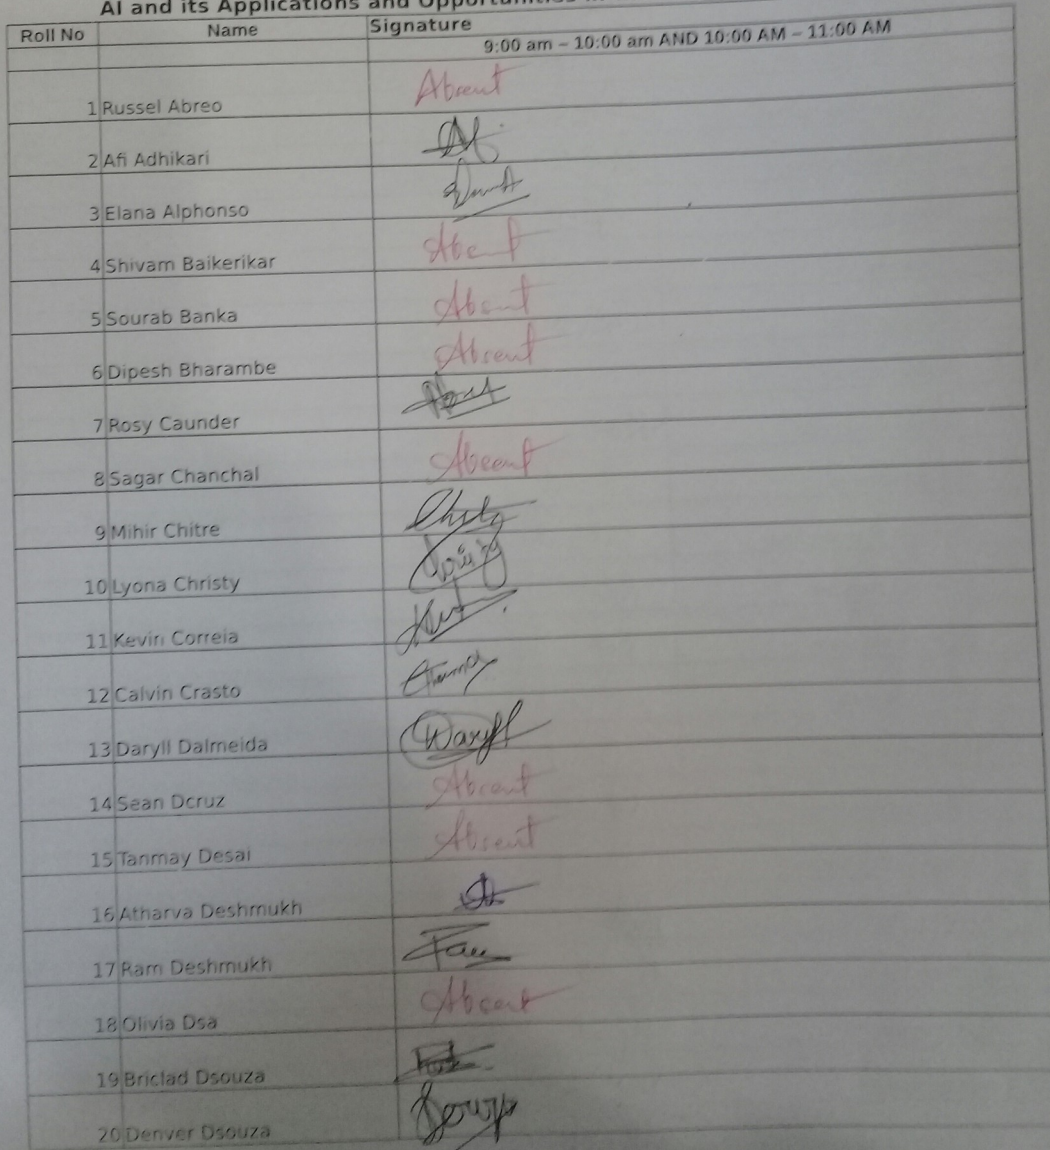 AI and its Applications and Opportunities
Roll No Name Signature
9:00 am – 10:00 am AND 10:00 AM – 11:00 AM
1 Russel Abreo Absent
2 Afi Adhikari
3 Elana Alphonso
4 Shivam Baikerikar Absent
5 Sourab Banka Absent
6 Dipesh Bharambe Absent
7 Rosy Caunder
8 Sagar Chanchal Absent
9 Mihir Chitre
10 Lyona Christy
11 Kevin Correia
12 Calvin Crasto
13 Daryll Dalmeida Daryll
14 Sean Dcruz Absent
15 Tanmay Desai Absent
16 Atharva Deshmukh
17 Ram Deshmukh
18 Olivia Dsa Absent
19 Briclad Dsouza
20 Denver Dsouza